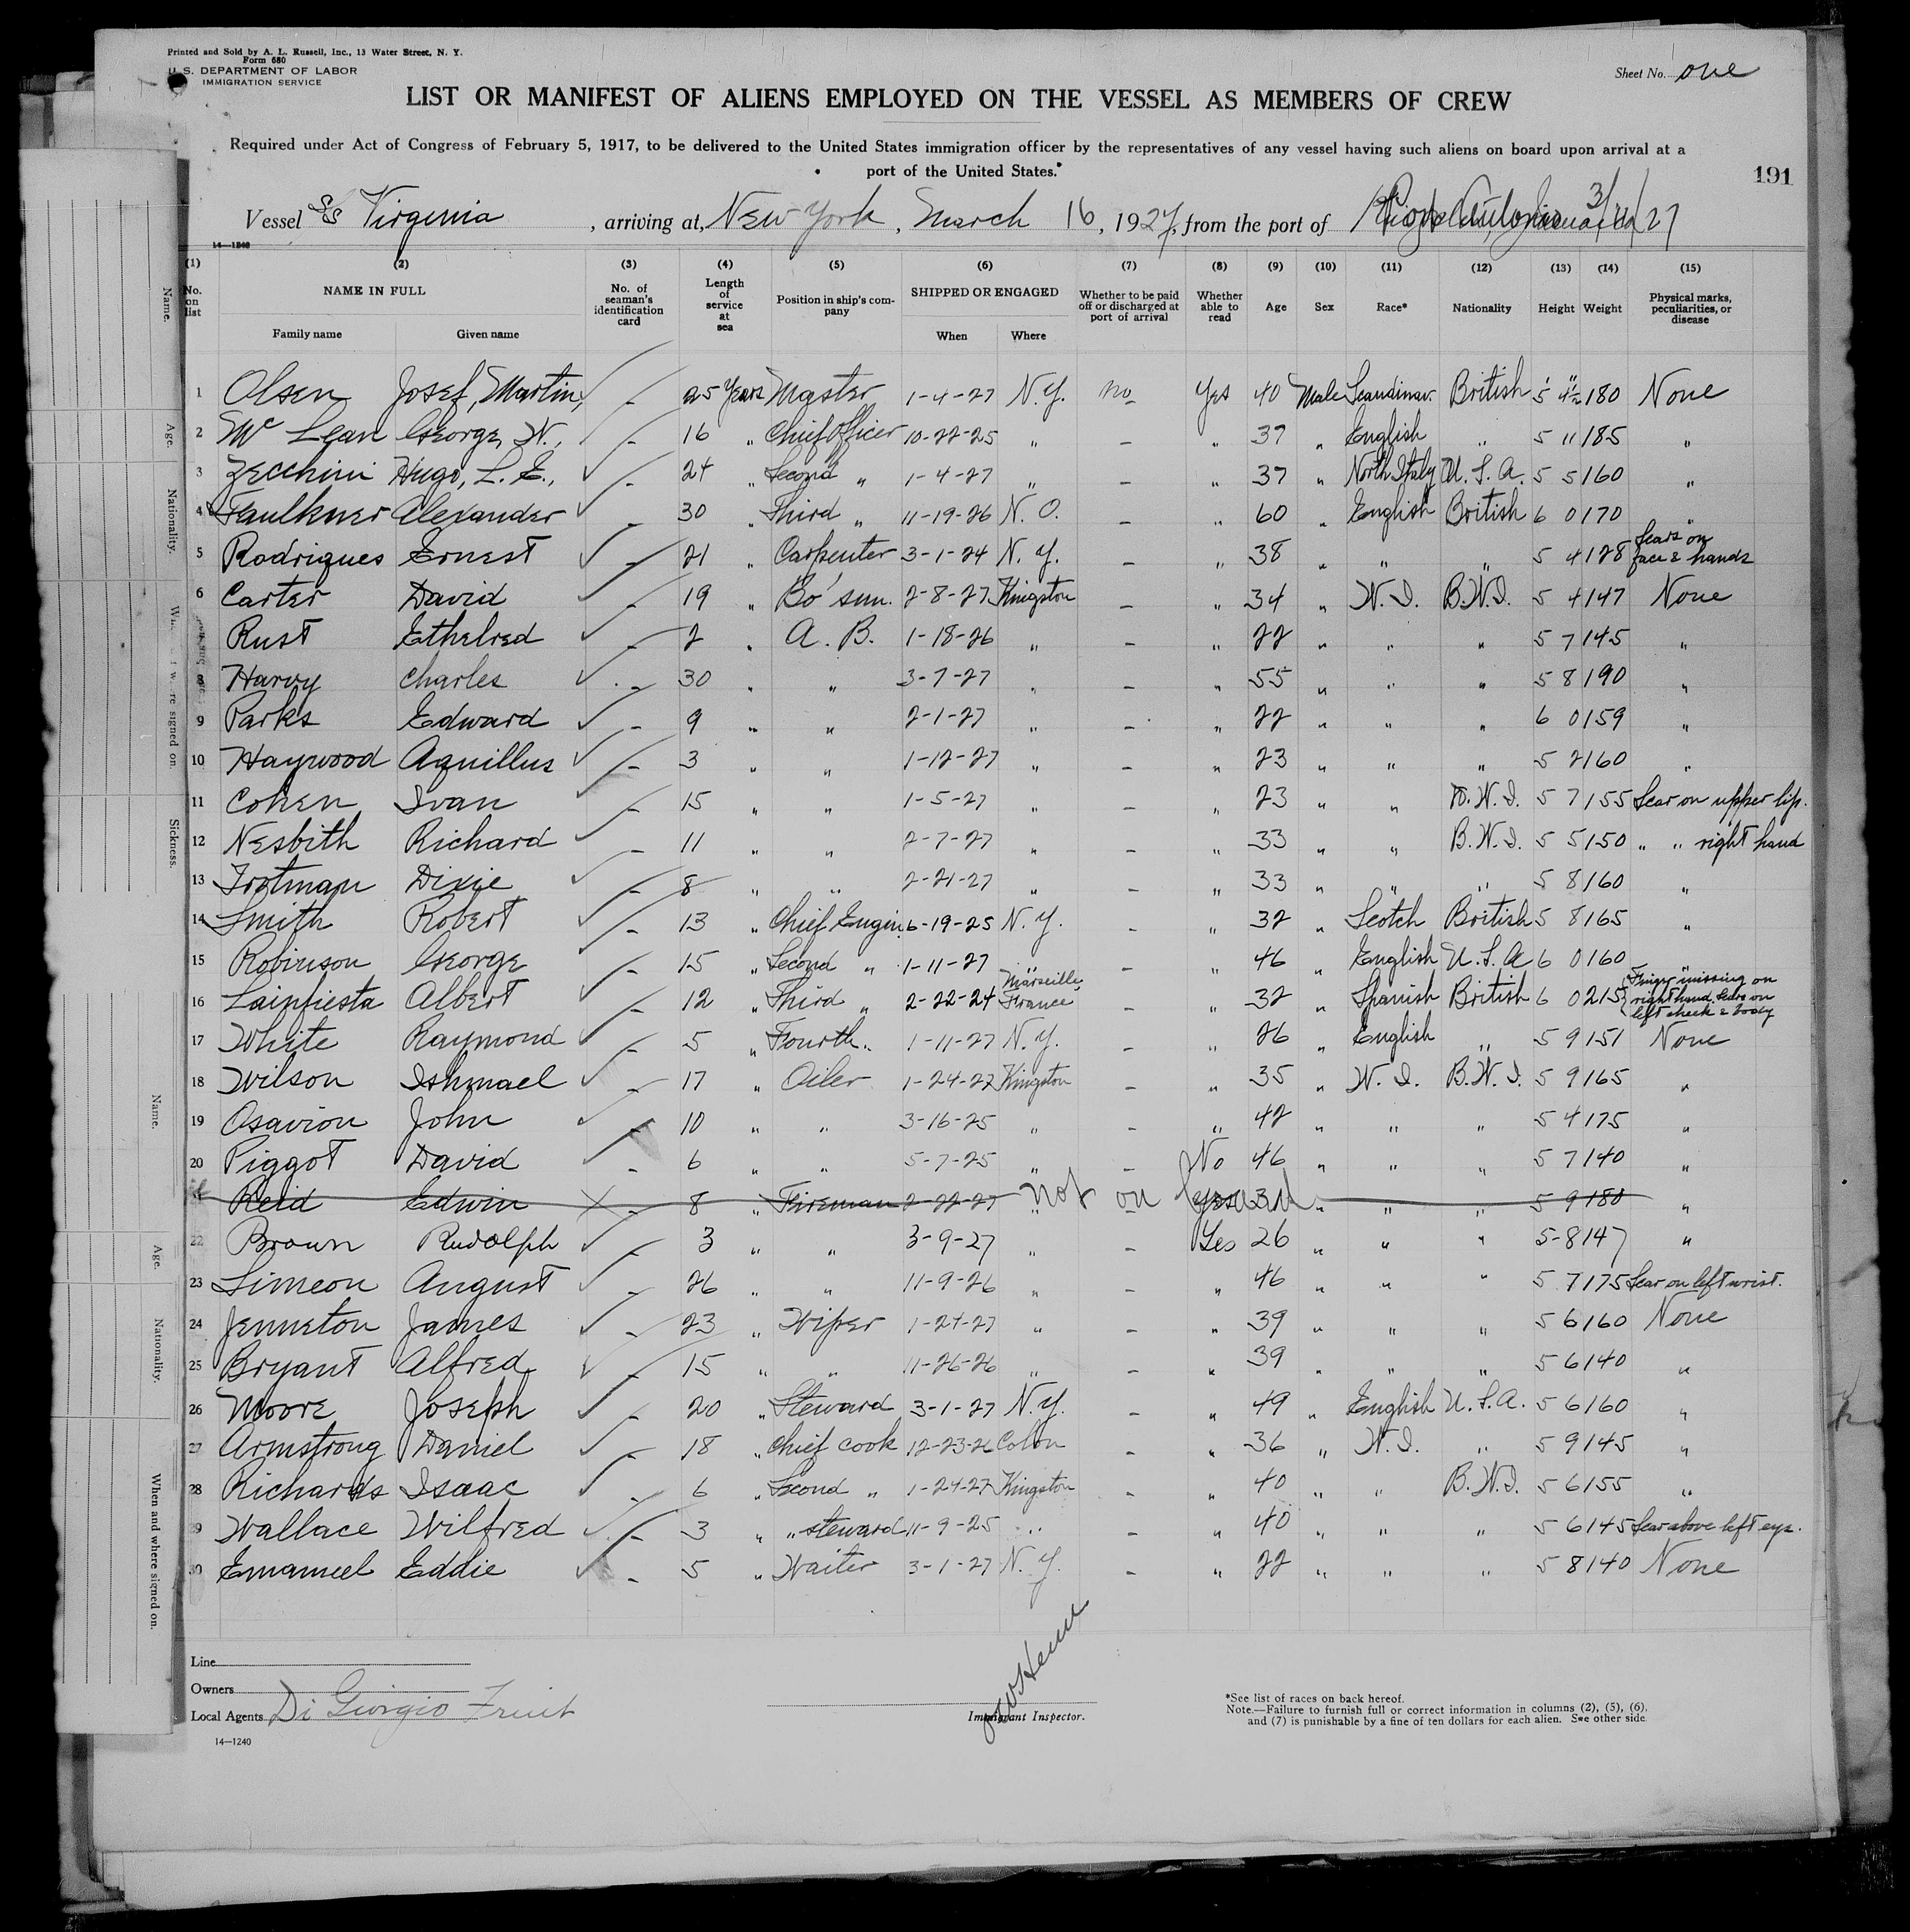 Printed and Sold by A. L. Russell, Inc., 13 Water Street, N. Y.
Form 680
U. S. DEPARTMENT OF LABOR
IMMIGRATION SERVICE
Sheet No. one
LIST OR MANIFEST OF ALIENS EMPLOYED ON THE VESSEL AS MEMBERS OF CREW
Required under Act of Congress of February 5, 1917, to be delivered to the United States immigration officer by the representatives of any vessel having such aliens on board upon arrival at a
port of the United States.
191
Vessel SS Virginia , arriving at, New York , March 16 , 1927, from the port of
14—1240
(1) (2) (3) (4) (5) (6) (7) (8) (9) (10) (11) (12) (13) (14) (15)
No. on list NAME IN FULL Family name Given name No. of seaman's identification card Length of service at sea Position in ship's company SHIPPED OR ENGAGED When Where Whether to be paid off or discharged at port of arrival Whether able to read Age Sex Race* Nationality Height Weight Physical marks, peculiarities, or disease
1 Olsen Josef, Martin, – 25 Years Master 1-4-27 N.Y. no Yes 40 Male Scandinav. British 5' 4½" 180 None
2 Mc Lean George, W., – 16 " Chief Officer 10-22-25 " – " 37 " English " 5 11 185 "
3 Zecchini Hugo, L. E., – 24 " Second " 1-4-27 " – " 37 " North Italy U. S. A. 5 5 160 "
4 Faulkner Alexander – 30 " Third " 11-19-26 N. O. – " 60 " English British 6 0 170 "
5 Rodriques Ernest – 21 " Carpenter 3-1-24 N. Y. – " 38 " " " 5 4 128 Scars on face & hands
6 Carter David – 19 " Bo'sun. 2-8-27 Kingston – " 34 " W. I. B.W.I. 5 4 147 None
Rust Ethelred – 2 " A. B. 1-18-26 " – " 22 " " " 5 7 145 "
8 Harvy Charles – 30 " " 3-7-27 " – " 55 " " " 5 8 190 "
9 Parks Edward – 9 " " 2-1-27 " – " 22 " " " 6 0 159 "
10 Haywood Aquillus – 3 " " 1-12-27 " – " 23 " " " 5 2 160 "
11 Cohen Ivan – 15 " " 1-5-27 " – " 23 " " B.W.I. 5 7 155 Scar on upper lip.
12 Nesbith Richard – 11 " " 2-7-27 " – " 33 " " B.W.I. 5 5 150 " " right hand
13 Trotman Dixie – 8 " " 2-21-27 " – " 33 " " " 5 8 160 "
14 Smith Robert – 13 " Chief Engin. 6-19-25 N. Y. – " 32 " Scotch British 5 8 165 "
15 Robinson George – 15 " Second " 1-11-27 " – " 46 " English U. S. A 6 0 160 "
16 Lainfiesta Albert – 12 " Third " 2-22-24 Marseille, France – " 32 " Spanish British 6 0 215 Finger missing on right hand, scars on left cheek & body
17 White Raymond – 5 " Fourth " 1-11-27 N. Y. – " 26 " English " 5 9 151 None
18 Wilson Ishmael – 17 " Oiler 1-24-27 Kingston – " 35 " W. I. B.W.I. 5 9 165 "
19 Osavion John – 10 " " 3-16-25 " – " 42 " " " 5 4 175 "
20 Piggot David – 6 " " 5-7-25 " – No 46 " " " 5 7 140 "
Reid Edwin – 8 " Fireman 2-22-27 " not on board " " " 5 9 180 "
22 Brown Rudolph – 3 " " 3-9-27 " – Yes 26 " " " 5-8 147 "
23 Simeon August – 26 " " 11-9-26 " – " 46 " " " 5 7 175 Scar on left wrist.
24 Jenneton James – 23 " Wiper 1-24-27 " – " 39 " " " 5 6 160 None
25 Bryant Alfred – 15 " " 11-26-26 " – " 39 " " " 5 6 140 "
26 Moore Joseph – 20 " Steward 3-1-27 N.Y. – " 49 " English U. S. A. 5 6 160 "
27 Armstrong Daniel – 18 " Chief cook 12-23-26 Colon – " 36 " W. I. " 5 9 145 "
28 Richards Isaac – 6 " Second " 1-24-27 Kingston – " 40 " " B.W.I. 5 6 155 "
29 Wallace Wilfred – 3 " " steward 11-9-25 " – " 40 " " " 5 6 145 Scar above left eye.
30 Emanuel Eddie – 5 " Waiter 3-1-27 N. Y. – " 22 " " " 5 8 140 None
Line
Owners
Local Agents Di Giorgio Fruit
Immigrant Inspector.
*See list of races on back hereof.
Note.—Failure to furnish full or correct information in columns (2), (5), (6),
and (7) is punishable by a fine of ten dollars for each alien. See other side.
14—1240
Name.
Age.
Nationality.
Sickness.
Name.
Age.
Nationality.
When and where signed on.